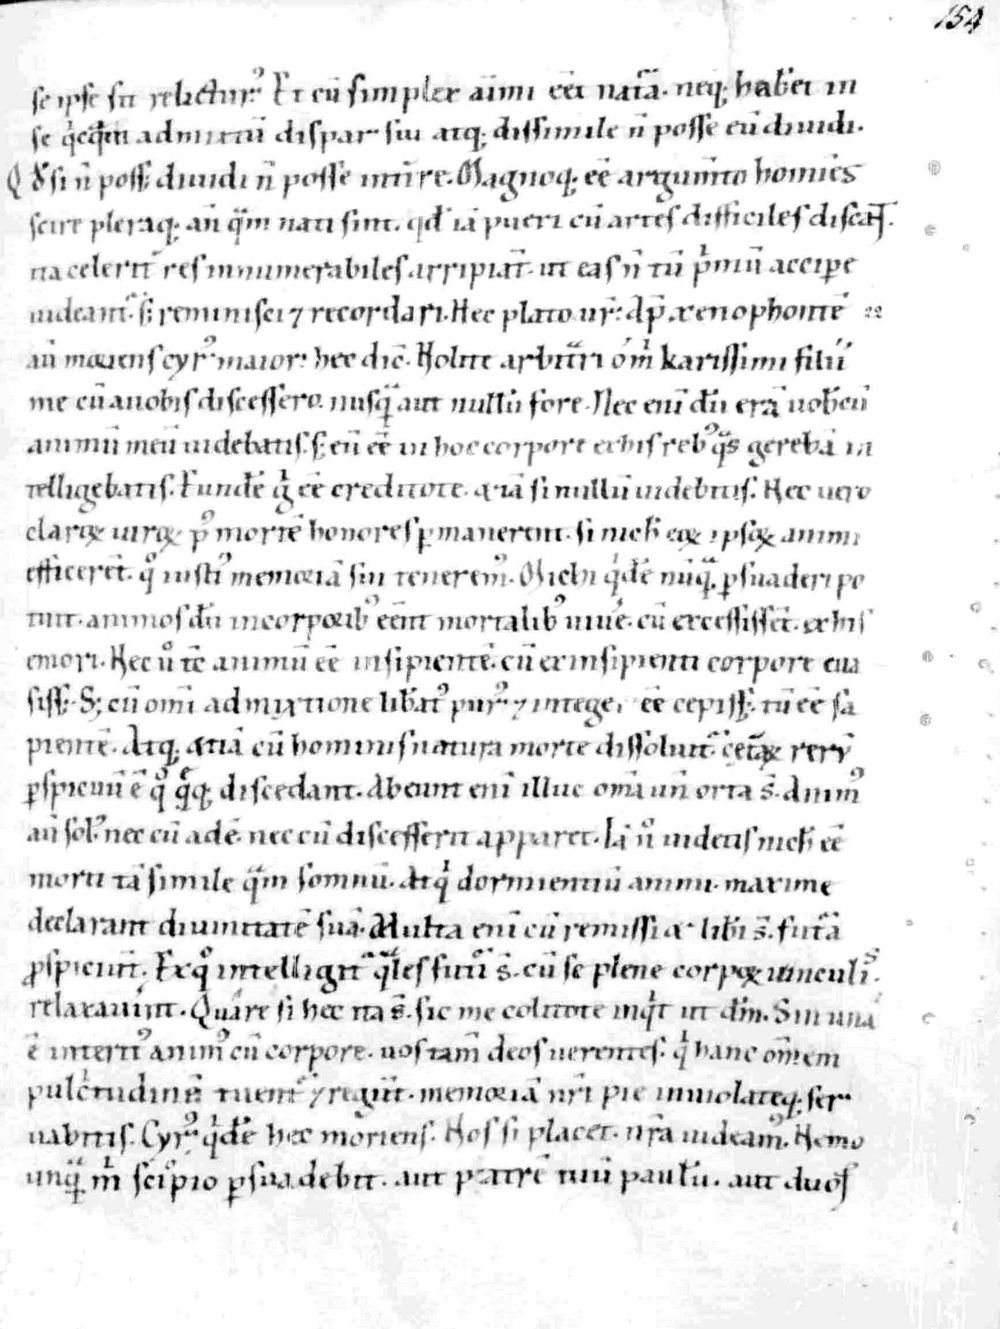 154
se ipse sit relictur᷒. Et cū simplex aīmi eēt natā. neq; hab̄et in
se q̇cq̄m admixtū dispar sui atq; dissimile n̄ posse eū diuidi.
Q Ꝙ si n̄ poss; diuidi n̄ posse int̄ire. Magnoq; eē argum̄to homīes
scire pleraq; an̄ q̄m nati sint. qđ iā pueri cū artes difficiles discāt.
ita celerit̄ res innumerabiles arripiāt. ut eas n̄ tū p̄mū accipe
uideant̄. s; reminisci ⁊ recordari. Hec plato nr̄. Ap̄ xenophontē
aū moriens cyr᷒ maior. hec dic̄. Nolite arbitrī o m̄ karissimi filii
me cū auobis discessero. nusq̄ aut nullū fore. Nec enī dū erā uob̄cū
animū meū uidebatis. s; eū eē in hoc corpore exhis reb᷒ q̄s gerebā in
telligebatis. Eundē gͥ eē creditote. etiā si nullū uidebitis. Nec uero
claroꝝ uiroꝝ p᷒ mortē honores ꝑmanerent. si nich̄ eoꝝ ipsoꝝ animi
efficerēt. qͦ iusti᷒ memoriā sui tenerem᷒. Michi q̇dē nūq̄ ꝑsuaderi po
tuit. animos dū incorporib᷒ eēnt mortalib᷒ uiuē. cū excessissēt. exhis
emori. Nec uͦ tc̄ animū eē insipientē. cū exinsipienti corpore eua
siss; S; cū omī admixtione liberat᷒ pur᷒ ⁊ integer eē cepiss; tū eē sa
pientē. Atq; etiā cū hominis natura morte dissoluit̄. cetaꝝ rerū
ꝑspicuū ē qͦ q̄q; discedant. Abeunt enī illuc omīa uñ orta s̄. Anim᷒
aū sol᷒ nec cū adē. nec cū discesserit apparet. Iā uͦ uidetis nich̄ eē
morti tā simile q̄m somnū. Atq̇ dormientiū animi. maxime
declarant diuinitatē suā. Multa enī cū remissi ⁊ lib̄i s̄. futā
ꝓspiciūt. Exqͦ intelligit̄ q̄les futī s̄. cū se plene corpoꝝ uinculis
relaxauīnt. Quare si hec ita s̄. sic me colitote inq̇t ut dm̄. Sin una
ē interit᷒ anim᷒ cū corpore. uos tam̄ deos uerentes. q̇ hanc om̄em
pulc̄tudinē tuent̄ ⁊ regūt. memoriā nr̄i pie inuiolateq; ser
uabitis. Cyr᷒ q̇dē hec moriens. Nos si placet. nr̄a uideam᷒. Nemo
unq̄ m̄ scipio ꝑsuadebit. aut patrē tuū paulū. aut duos